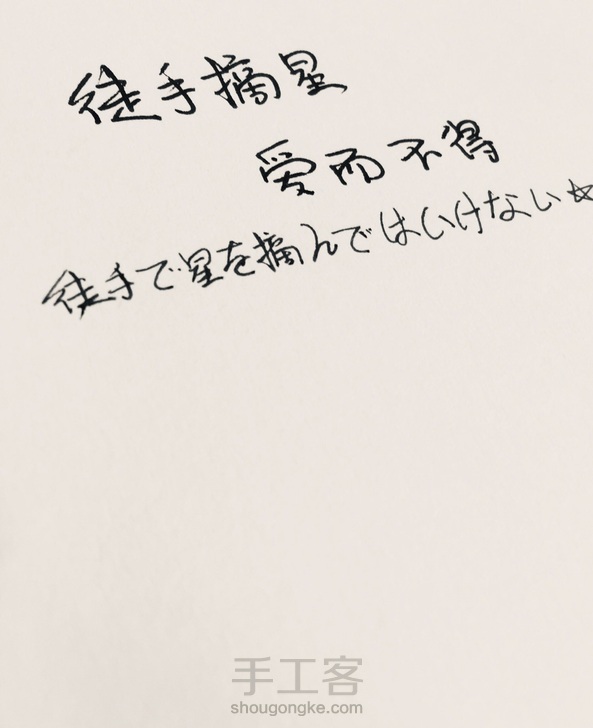 徒手摘星
爱而不得
徒手で星を摘んではいけない☆
手工客
shougongke.com